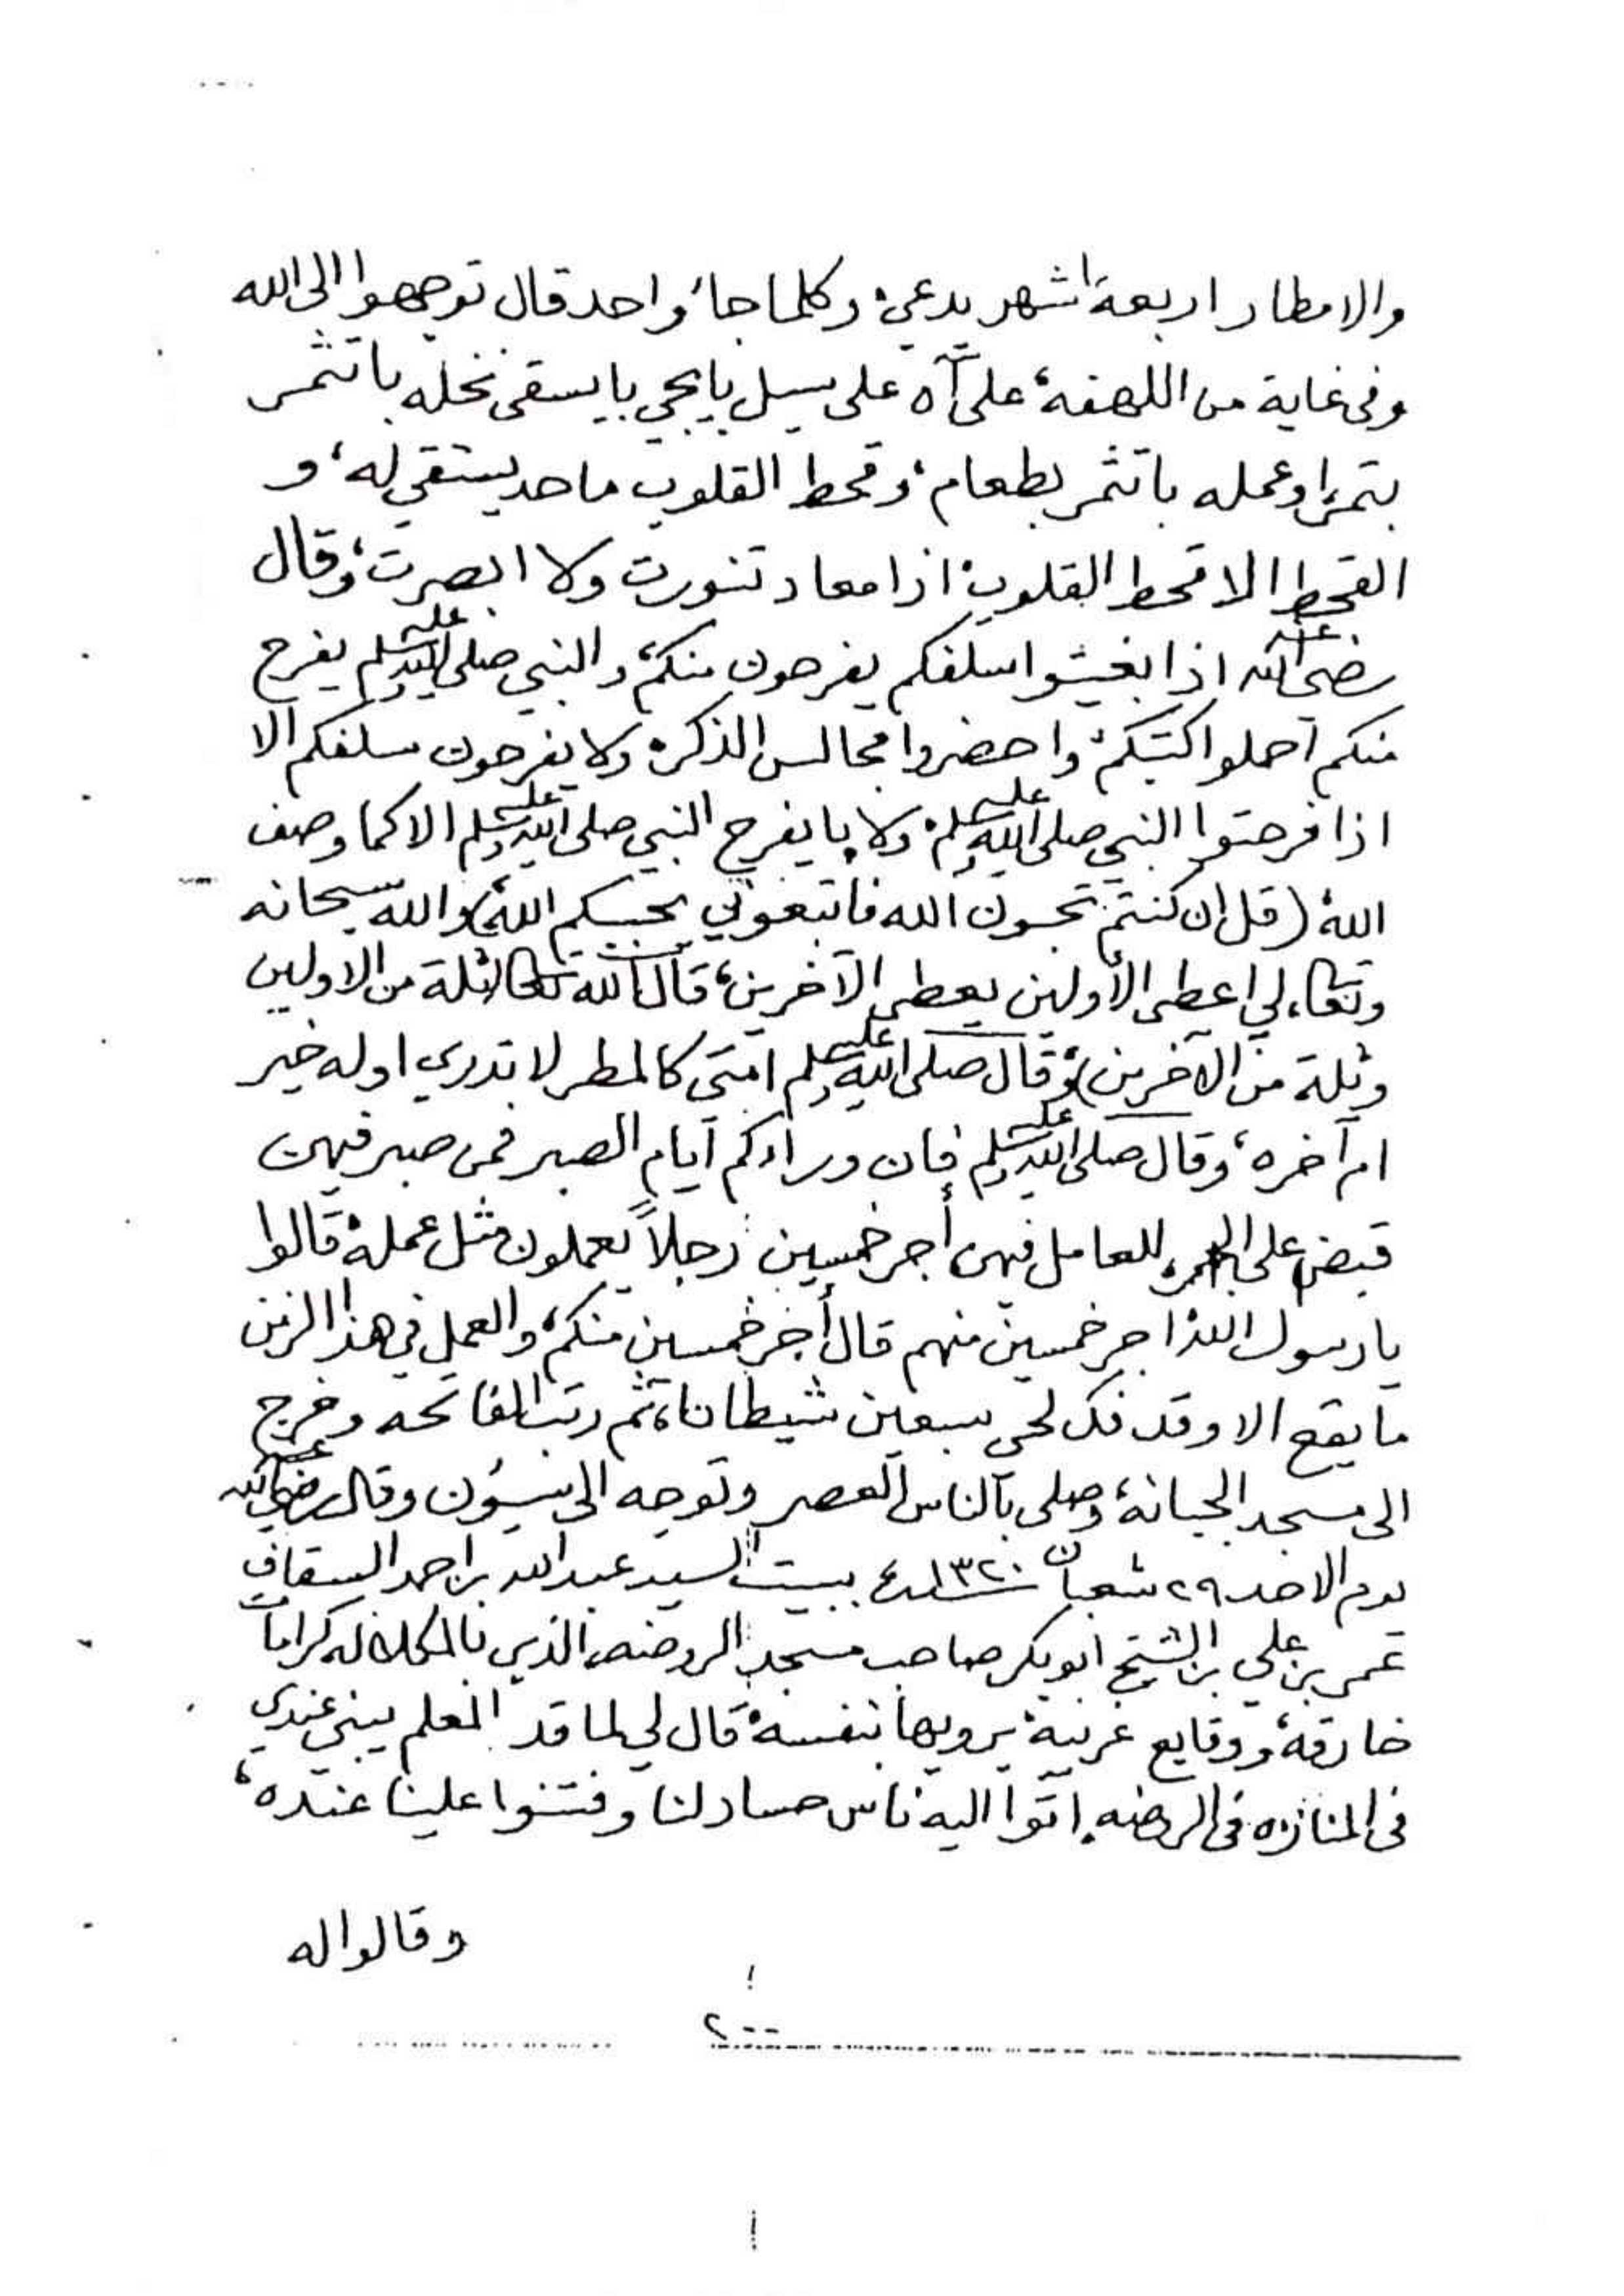 والامطار اربعة اشهر يدعي، وكلما جاء واحد قال توجهوا الى الله
وفي غاية من اللهفة، على آه على سيل بايجي بايسقي نخله باتثمر
بتمر، او عمله باتثمر بطعام، وقحط القلوب ما حد يستقي له، و
القحط الا قحط القلوب، اذا معاد تنورت ولا ابصرت، وقال
رضي الله عنه اذا بغيتوا سلفكم يفرحون منكم، والنبي صلى الله عليه وسلم يفرح
منكم احملوا كتبكم، واحضروا مجالس الذكر، ولا يفرحون سلفكم الا
اذا فرحتوا النبي صلى الله عليه وسلم، ولا بايفرح النبي صلى الله عليه وسلم الا كما وصف
الله، (قل ان كنتم تحبون الله فاتبعوني يحببكم الله) والله سبحانه
وتعالى لي اعطى الأولين يعطي الآخرين، قال الله تعالى (ثلة من الاولين
وثلة من الآخرين)، وقال صلى الله عليه وسلم امتي كالمطر لا تدري اوله خير
ام آخره، وقال صلى الله عليه وسلم فان وراءكم أيام الصبر فمن صبر فيهن
قبض على الجمر، للعامل فيهن أجر خمسين رجلاً يعملون مثل عمله، قالوا
يا رسول الله اجر خمسين منهم قال أجر خمسين منكم، والعمل في هذا الزمن
ما يقع الا وقد فك لحي سبعين شيطانا، ثم رتب الفاتحه وخرج
الى مسجد الجبانة، وصلى بالناس العصر وتوجه الى سيؤن وقال رضي الله عنه
يوم الاحد ٢٩ شعبان سنة ١٣٢٠ ببيت السيد عبدالله بن احمد السقاف
عمر بن علي بن الشيخ ابوبكر صاحب مسجد الروضه، الذي بالمكلا له كرامات
خارقة، ووقايع غريبة، يرويها بنفسه، قال لي لما قد المعلم يبني عندي
في المنازه في الروضه، اتوا اليه ناس حساد لنا وفتنوا علينا عنده،
وقالوا له
٢٠٠